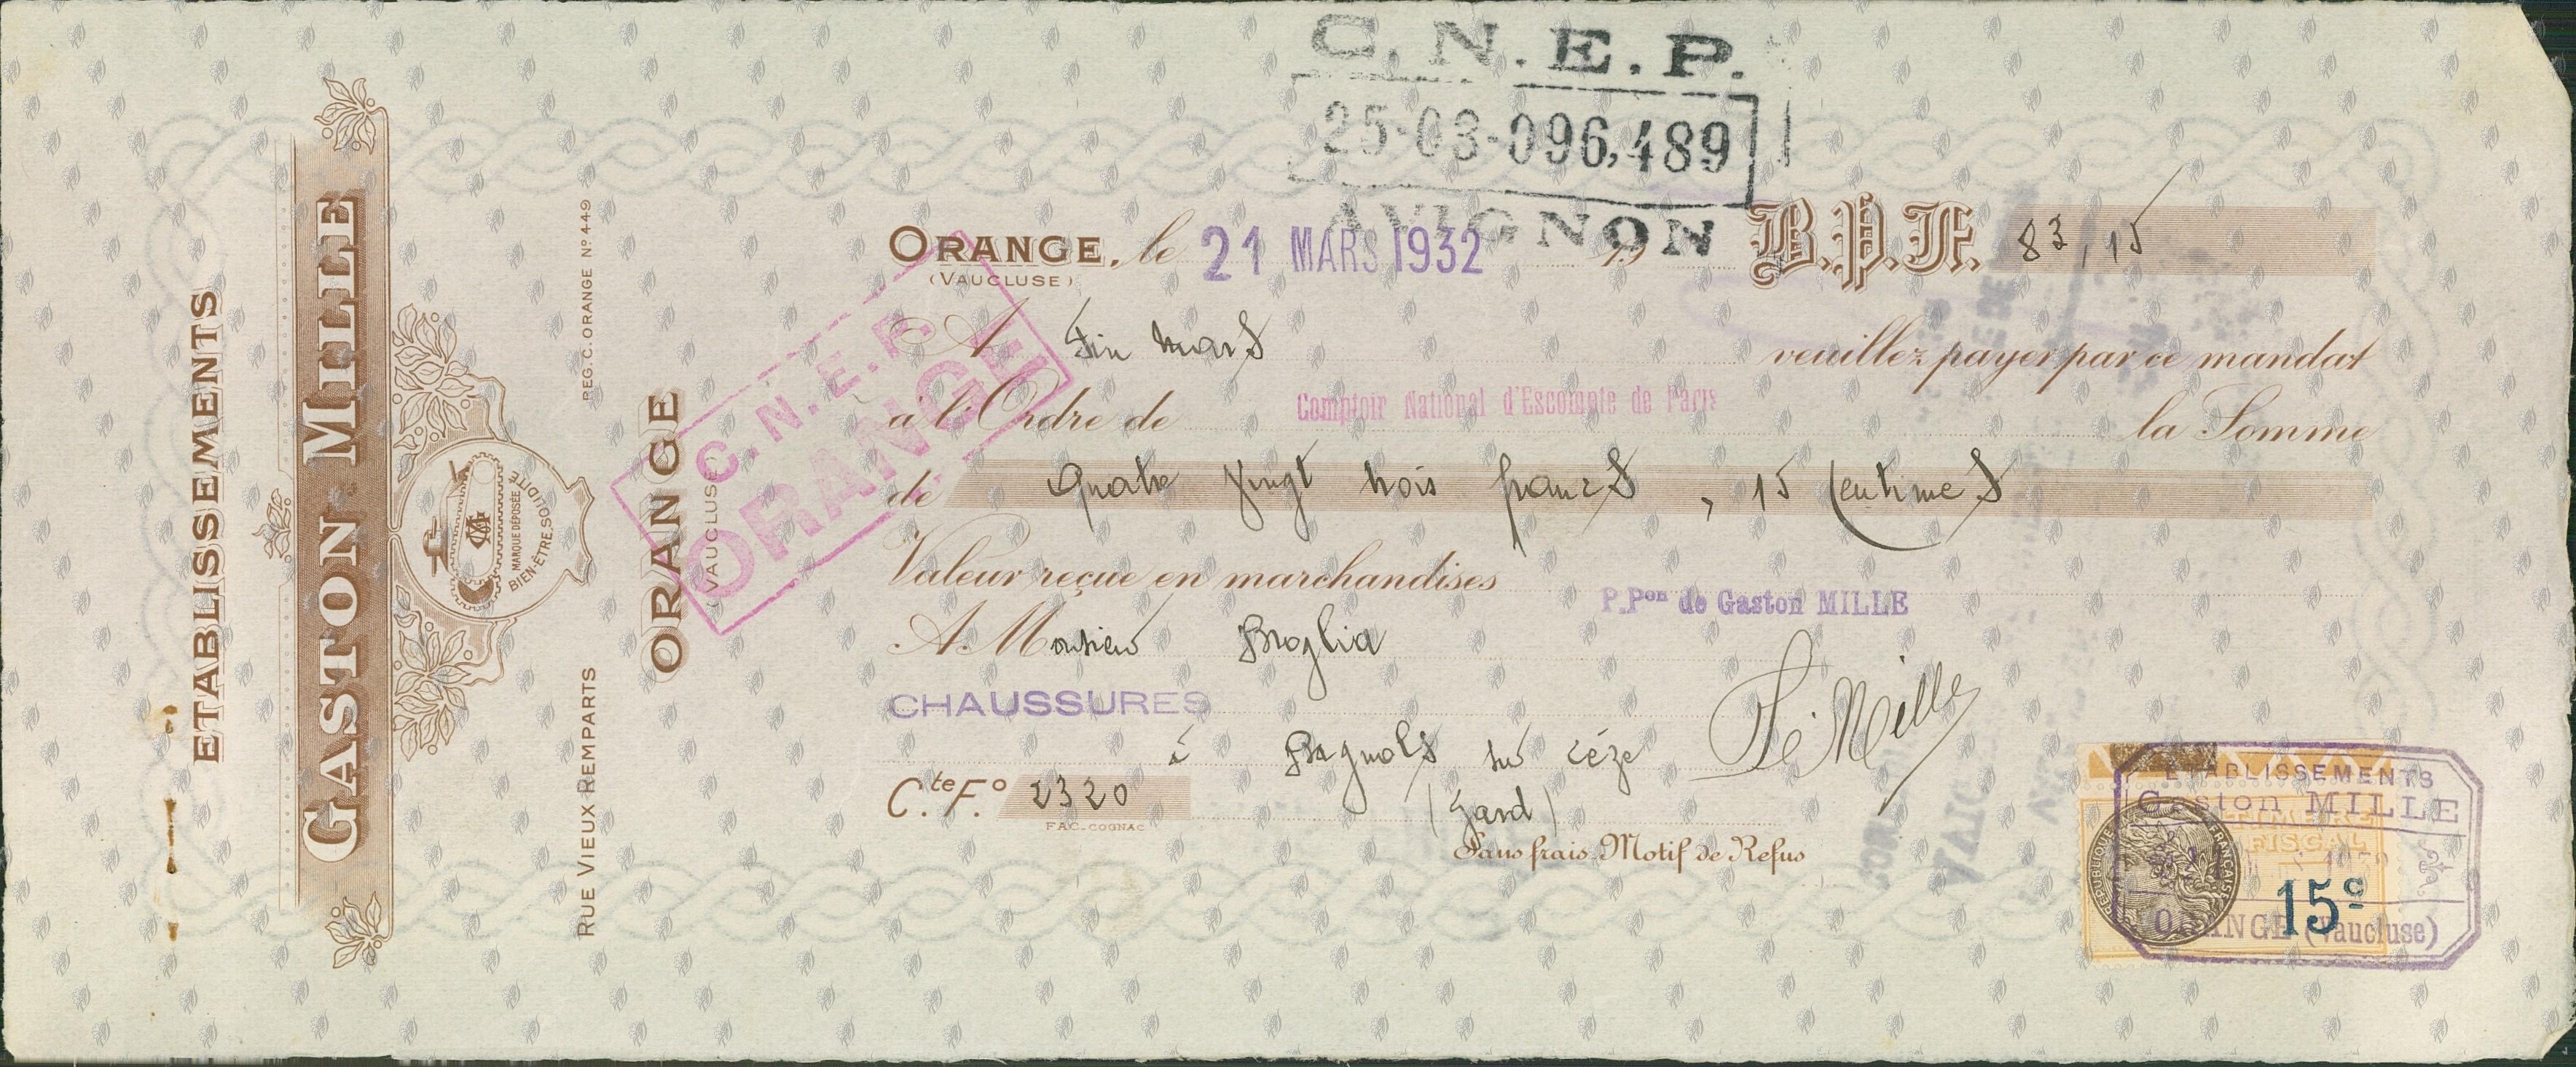 ETABLISSEMENTS
GASTON MILLE
MARQUE DÉPOSÉE
BIEN-ÊTRE, SOLIDITÉ
REG. C. ORANGE Nº 449
RUE VIEUX REMPARTS
ORANGE
(VAUCLUSE)
C.N.E.P.
ORANGE
C.N.E.P.
25-03-096,489
AVIGNON
ORANGE, le 21 MARS 1932 19 B.P.F. 83,15
(VAUCLUSE)
A fin mars veuillez payer par ce mandat
à l'Ordre de Comptoir National d'Escompte de Paris la Somme
de Quatre vingt trois francs, 15 centimes
Valeur reçue en marchandises
P.Pon de Gaston MILLE
A. Monsieur Broglia
CHAUSSURES
à Bagnols sur Cèze
(Gard)
Cte. Fº 2320
FAC-COGNAC
Sans frais. Motif de Refus
ETABLISSEMENTS
Gaston MILLE
TIMBRE
FISCAL
REPUBLIQUE FRANÇAISE
15c
ORANGE (Vaucluse)